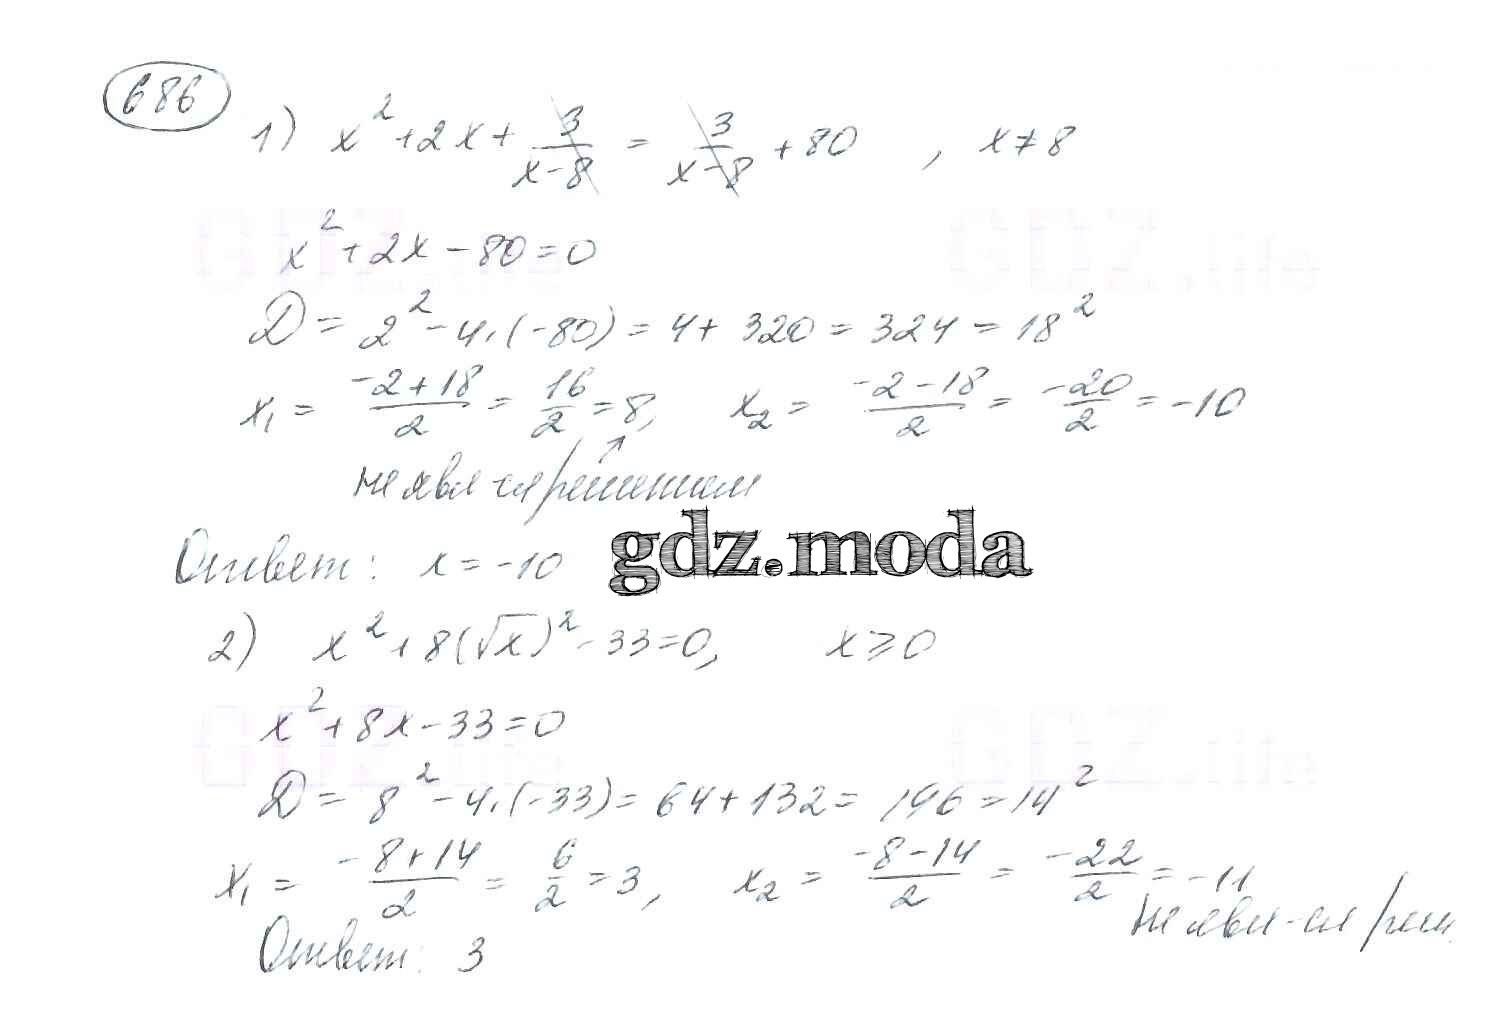 686
1) x² + 2x + 3/(x-8) = 3/(x-8) + 80 , x ≠ 8
x² + 2x - 80 = 0
D = 2² - 4·(-80) = 4 + 320 = 324 = 18²
x₁ = (-2+18)/2 = 16/2 = 8, x₂ = (-2-18)/2 = -20/2 = -10
не явл-ся решением
Ответ: x = -10
gdz.moda
2) x² + 8(√x)² - 33 = 0, x ⩾ 0
x² + 8x - 33 = 0
D = 8² - 4·(-33) = 64 + 132 = 196 = 14²
x₁ = (-8+14)/2 = 6/2 = 3, x₂ = (-8-14)/2 = -22/2 = -11
не явл-ся реш
Ответ: 3
GDZ.life
GDZ.life
GDZ.life
GDZ.life